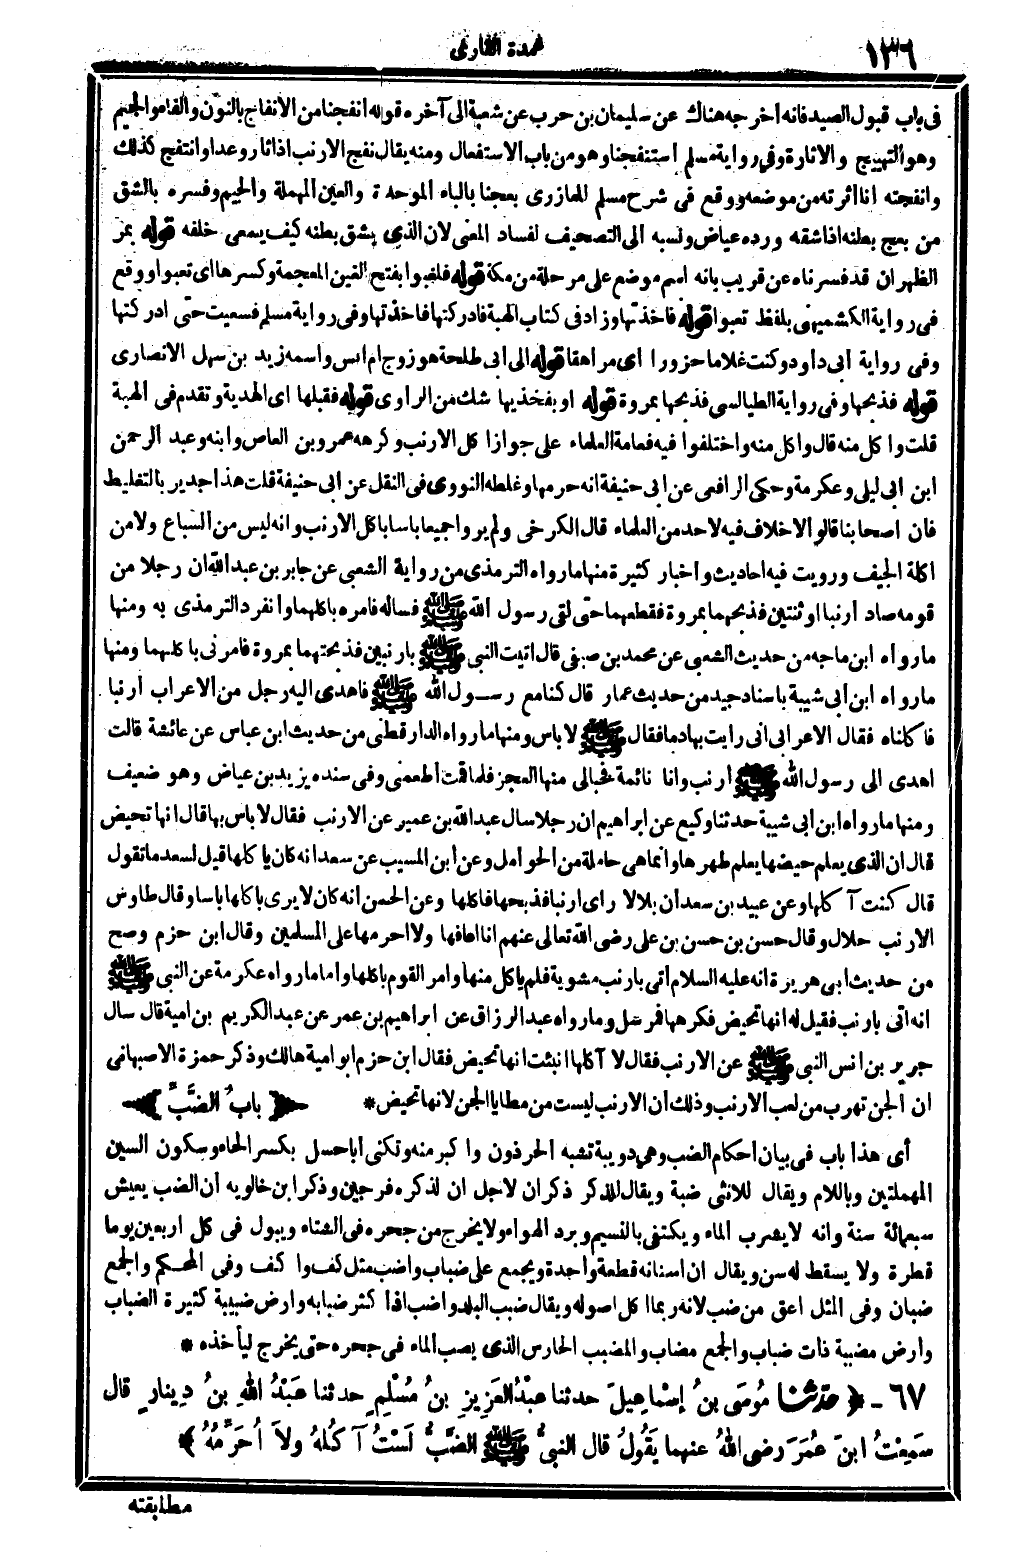 ١٣٦
عمدة القارى
فى باب قبول الصيد فانه أخرجه هناك عن سليمان بن حرب عن شعبة الى آخره قوله انفجنا من الانفاج بالنون والفاء والجيم
وهو التهييج والاثارة وفى رواية مسلم استنفجنا وهو من باب الاستفعال ومنه يقال نفج الارنب اذا ثار وعدا وانتفج كذلك
وانفجته انا اثرته من موضعه ووقع فى شرح مسلم للمازرى بعجنا بالباء الموحدة والعين المهملة والجيم وفسره بالشق
من بعج بطنه اذا شقه ورده عياض ونسبه الى التصحيف لفساد المعنى لان الذى يشق بطنه كيف يسعى خلفه قوله بمر
الظهران قد فسرناه عن قريب بانه اسم موضع على مرحلة من مكة قوله فلغبوا بفتح الغين المعجمة وكسرها اى تعبوا ووقع
فى رواية الكشميهنى بلفظ تعبوا قوله فاخذتها وزاد فى كتاب الهبة فادركتها فاخذتها وفى رواية مسلم فسعيت حتى ادركتها
وفى رواية ابى داود وكنت غلاما حزورا اى مراهقا قوله الى ابى طلحة هو زوج ام انس واسمه زيد بن سهل الانصارى
قوله فذبحها وفى رواية الطيالسى فذبحها بمروة قوله او بفخذيها شك من الراوى قوله فقبلها اى الهدية وتقدم فى الهبة
قلت واكل منه قال واكل منه واختلفوا فيه فعامة العلماء على جواز اكل الارنب وكرهه عمرو بن العاص وابنه وعبد الرحمن
ابن ابى ليلى وعكرمة وحكى الرافعى عن ابى حنيفة انه حرمها وغلطه النووى فى النقل عن ابى حنيفة قلت هذا جدير بالتغليط
فان اصحابنا قالوا لا خلاف فيه لاحد من العلماء قال الكرخى ولم يروا جميعا باسا باكل الارنب وانه ليس من السباع ولا من
اكلة الجيف ورويت فيه احاديث واخبار كثيرة منها ما رواه الترمذى من رواية الشعبى عن جابر بن عبد الله ان رجلا من
قومه صاد أرنبا او ثنتين فذبحهما بمروة فقطعهما حتى لقى رسول الله ﷺ فساله فامره باكلهما وانفرد الترمذى به ومنها
ما رواه ابن ماجه من حديث الشعبى عن محمد بن صيفى قال اتيت النبى ﷺ بارنبين فذبحتهما بمروة فامرنى باكلهما ومنها
ما رواه ابن أبى شيبة باسناد جيد من حديث عمار قال كنا مع رسول الله ﷺ فاهدى اليه رجل من الاعراب أرنبا
فاكلناه فقال الاعرابى انى رايت بها دما فقال ﷺ لا باس ومنها ما رواه الدارقطنى من حديث ابن عباس عن عائشة قالت
اهدى الى رسول الله ﷺ أرنب وانا نائمة فخبا لى منها العجز فلما قمت أطعمنى وفى سنده يزيد بن عياض وهو ضعيف
ومنها ما رواه ابن ابى شيبة حدثنا وكيع عن ابراهيم ان رجلا سال عبد الله بن عمير عن الارنب فقال لا باس بها قال انها تحيض
قال ان الذى يعلم حيضها يعلم طهرها وانما هى حاملة من الحوامل وعن أبن المسيب عن سعد انه كان ياكلها قيل لسعد ما تقول
قال كنت آكلها وعن عبيد بن سعد أن بلالا راى ارنبا فذبحها فاكلها وعن الحسن انه كان لا يرى باكلها باسا وقال طاوس
الارنب حلال وقال حسن بن حسن بن على رضى الله تعالى عنهم انا اعافها ولا احرمها على المسلمين وقال ابن حزم وصح
من حديث ابى هريرة انه عليه السلام أتى بارنب مشوية فلم ياكل منها وامر القوم باكلها واما ما رواه عكرمة عن النبى ﷺ
انه اتى بارنب فقيل له انها تحيض فكرهها فمرسل وما رواه عبد الرزاق عن ابراهيم بن عمر عن عبد الكريم بن امية قال سال
جرير بن انس النبى ﷺ عن الارنب فقال لا آكلها انبئت انها تحيض فقال ابن حزم ابو امية هالك وذكر حمزة الاصبهانى
ان الجن تهرب من لعب الارنب وذلك أن الارنب ليست من مطايا الجن لانها تحيض *
باب الضَّبِّ
أى هذا باب فى بيان أحكام الضب وهى دويبة تشبه الحرذون واكبر منه وتكنى أبا حسل بكسر الحاء وسكون السين
المهملتين وباللام ويقال للانثى ضبة ويقال للذكر ذكران لاجل ان لذكره فرجين وذكر ابن خالويه أن الضب يعيش
سبعمائة سنة وانه لا يشرب الماء ويكتفى بالنسيم وبرد الهواء ولا يخرج من جحره فى الشتاء ويبول فى كل اربعين يوما
قطرة ولا يسقط له سن ويقال ان اسنانه قطعة واحدة ويجمع على ضباب واضب مثل كف واكف وفى المحكم والجمع
ضبان وفى المثل اعق من ضب لانه ربما اكل اصوله ويقال ضبب البلد واضب اذا كثر ضبابه وارض ضبيبة كثيرة الضباب
وأرض مضببة ذات ضباب والجمع مضاب والمضبب الحارس الذى يصب الماء فى جحره حتى يخرج ليأخذه *
٦٧ - ﴿ حدثنا مُوسَى بنُ إسْماعِيلَ حدثنا عبْدُ العَزِيزِ بنُ مُسْلِمٍ حدثنا عَبْدُ اللهِ بنُ دِينارٍ قال
سَمِعْتُ ابنَ عُمَرَ رضى اللهُ عنهما يَقُولُ قال النبىُّ ﷺ الضَّبُّ لَسْتُ آكُلُهُ ولاَ أُحَرِّمُهُ ﴾
مطابقته